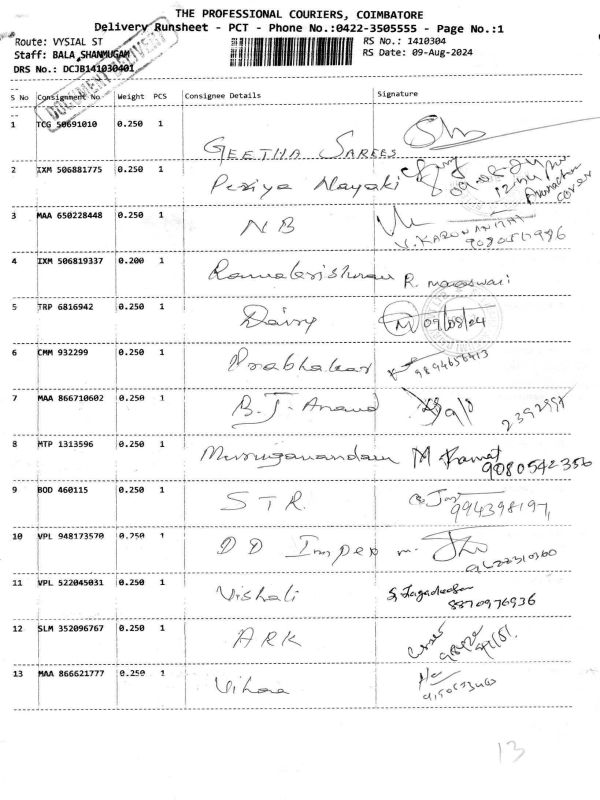 THE PROFESSIONAL COURIERS, COIMBATORE
Delivery Runsheet - PCT - Phone No.:0422-3505555 - Page No.:1
Route: VYSIAL ST RS No.: 1410304
Staff: BALA SHANMUGAM RS Date: 09-Aug-2024
DRS No.: DCJB141030401
DOCUMENT DELIVERY
S No Consignment No Weight PCS Consignee Details Signature
1 TCG 50691010 0.250 1 GEETHA SAREES
2 IXM 506881775 0.250 1 Periya Nayaki 09-08-24
3 MAA 650228448 0.250 1 N B V. KARUNANITHI
4 IXM 506819337 0.200 1 Ramakrishnan R. mageswari
5 TRP 6816942 0.250 1 Dairy 09/08/24
6 CMM 932299 0.250 1 Prabhakar 9894656413
7 MAA 866710602 0.250 1 B.J. Anand 2392997
8 MTP 1313596 0.250 1 Muruganandam M 9080542356
9 BOD 460115 0.250 1 STR.
10 VPL 948173570 0.250 1 DD Impex
11 VPL 522045031 0.250 1 Vishali S. Jagadeesan
8870976936
12 SLM 352096767 0.250 1 ARK
13 MAA 866621777 0.250 1
13